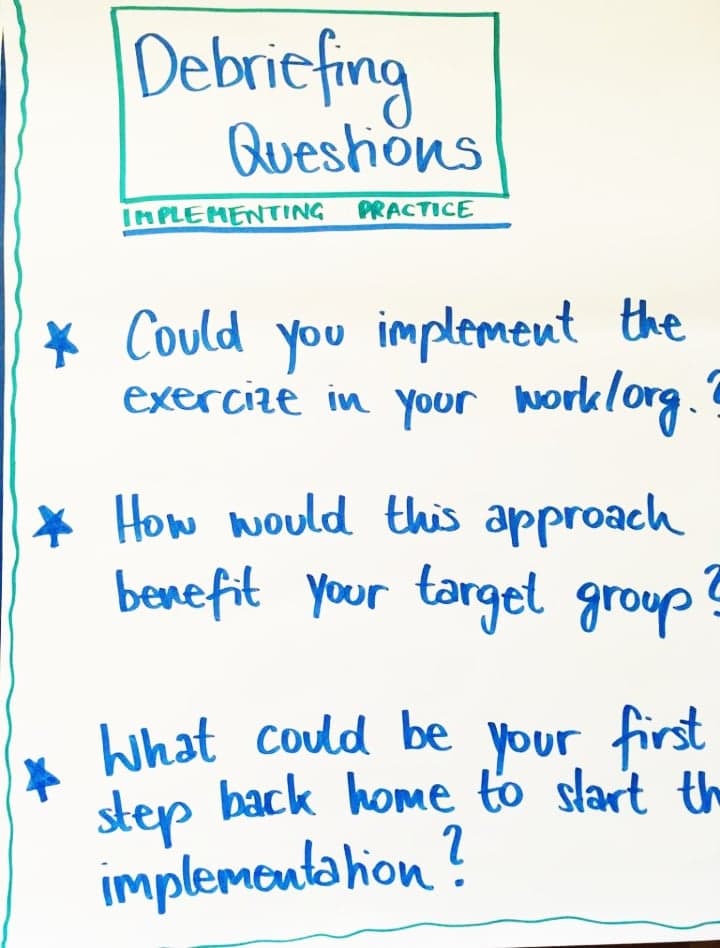 Debriefing
Questions
IMPLEMENTING PRACTICE
Could you implement the
exercize in your work/org.?
How would this approach
benefit your target group?
What could be your first
step back home to start th
implementation?